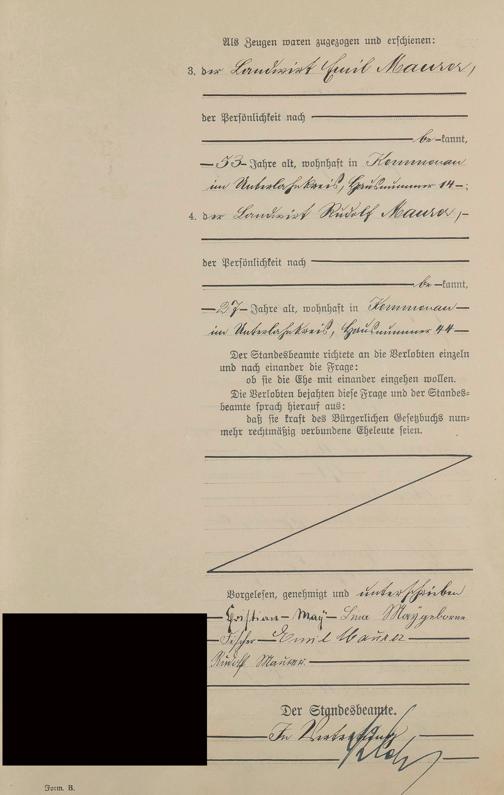 Als Zeugen waren zugezogen und erschienen:
3. der Landwirt Emil Maurer,
der Persönlichkeit nach
be-kannt,
53 Jahre alt, wohnhaft in Kemmenau
im Unterlahnkreis, Hausnummer 14 ;
4. der Landwirt Rudolf Maurer,
der Persönlichkeit nach
be-kannt,
27 Jahre alt, wohnhaft in Kemmenau
im Unterlahnkreis, Hausnummer 44
Der Standesbeamte richtete an die Verlobten einzeln
und nach einander die Frage:
ob sie die Ehe mit einander eingehen wollen.
Die Verlobten bejahten diese Frage und der Standes-
beamte sprach hierauf aus:
daß sie kraft des Bürgerlichen Gesetzbuchs nun-
mehr rechtmäßig verbundene Eheleute seien.
Vorgelesen, genehmigt und unterschrieben
Christian May Lina May geborne
Fischer Emil Maurer
Rudolf Maurer.
Der Standesbeamte.
In Vertretung
Form. B.